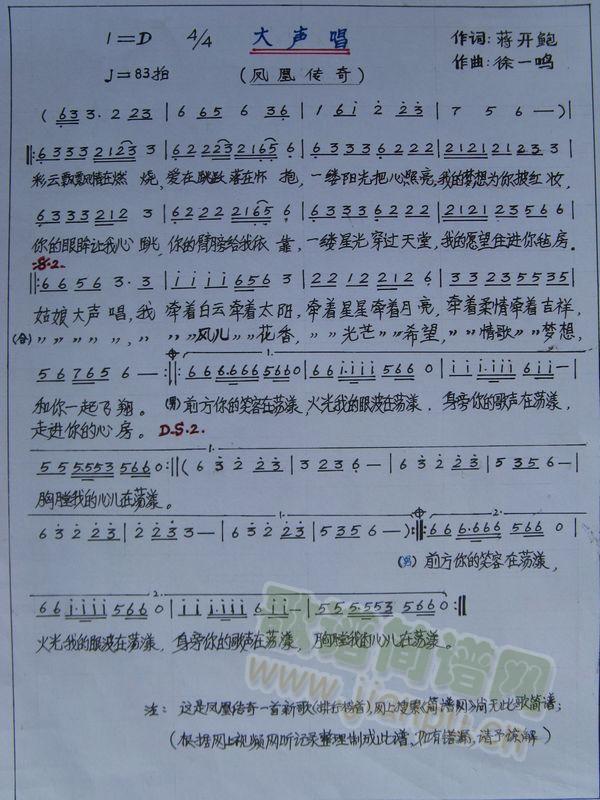 1=D 4/4 大声唱 作词: 蒋开鲍
♩=83拍 (凤凰传奇) 作曲: 徐一鸣
(6 3 3. 2 2 3 | 6 6 5 6 3 6 | 1 6 1 2 2 3 | 7 5 6 — )|
‖: 6 3 3 3 2 1 2 3 3 | 6 2 2 2 2 3 2 1 6 5 6 | 6 3 3 3 2 3 2 2 | 2 1 2 1 2 1 2 3 3 |
彩云飘飘风情在燃 烧, 爱在跳跃落在怀 抱, 一缕阳光把心照亮, 我的梦想为你披红妆,
6 3 3 3 2 1 2 3 | 6 2 2 2 2 1 6 5 6 | 6 3 3 3 2 3 2 2 | 2 1 2 1 2 3 5 6 6 |
你的眼眸让我心 跳, 你的臂膀给我依 靠, 一缕星光穿过天堂, 我的愿望住进你毡房。
S.2.
‖: 6 6 5 6 3. 3 | i i i i 6 5 6 3 | 2 2 1 2 2 1 2 6 | 3 3 2 3 5 5 3 5 |
姑娘大声唱, 我 牵着白云牵着太阳, 牵着星星牵着月亮, 牵着柔情牵着吉祥,
(合) 〃 〃 〃 〃 〃, 〃 〃 〃风儿〃 〃花香, 〃 〃光芒〃 〃希望, 〃 〃情歌〃 〃梦想,
1.
5 6 7 6 5 6 — :‖ 6 6 6.6 6 6 5 6 6 0 | 6 6 i.i i i 5 6 6 0 | i i i.i i i 6 i — |
和你一起飞翔。 (男) 前方你的笑容在荡漾, 火光我的眼波在荡漾, 身旁你的歌声在荡漾,
走进你的心房。 D.S.2.
1.
5 5 5.5 5 3 5 6 6 0 :‖( 6 3 2 2 3 | 3 2 3 6 — | 6 3 2 2 3 | 5 3 5 6 — |
胸膛我的心儿在荡漾。
1. 2.
6 3 2 2 3 | 2 2 3 3 — | 6 3 2 2 3 | 5 3 5 6 — ) :‖: 6 6 6.6 6 6 5 6 6 0 |
(男) 前方你的笑容在荡漾,
2.
6 6 i.i i i 5 6 6 0 | i i i.i i i 6 i — | 5 5 5.5 5 3 5 6 6 0 :‖
火光我的眼波在荡漾, 身旁你的歌声在荡漾, 胸膛我的心儿在荡漾。
歌谱简谱网
www.jianpu.cn
注: 这是凤凰传奇一首新歌(排行榜首), 网上搜索《简谱网》尚无此歌简谱;
(根据网上视频网听记录整理制成此谱, 如有错漏, 请予谅解)